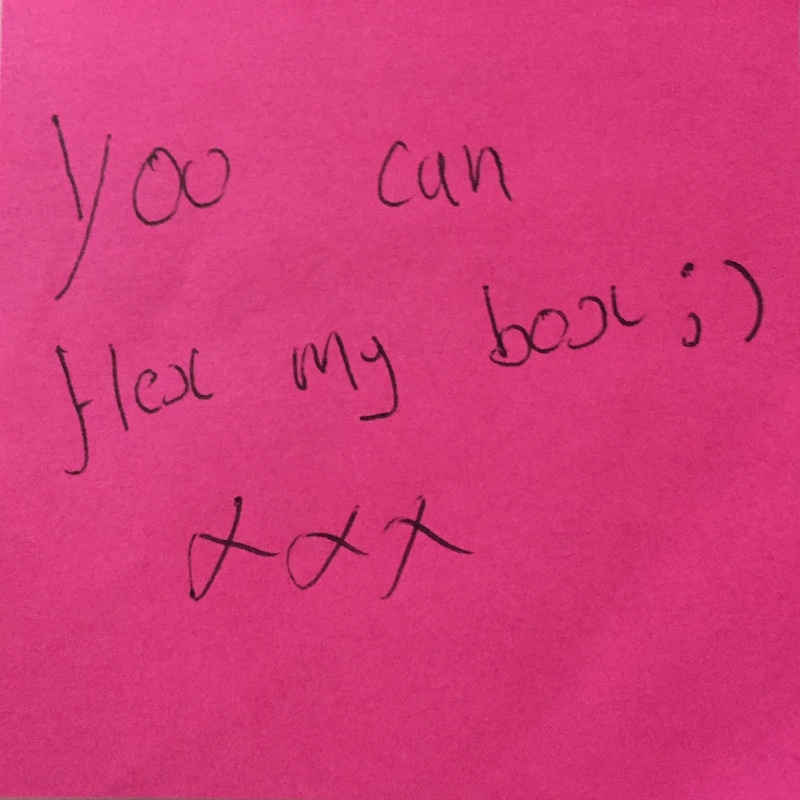 You can
flex my box ;)
xxx